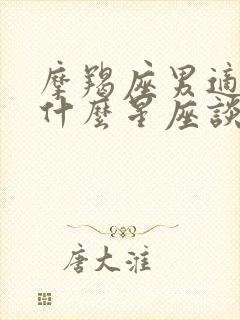 摩羯座男適
什麼星座談
唐大淮